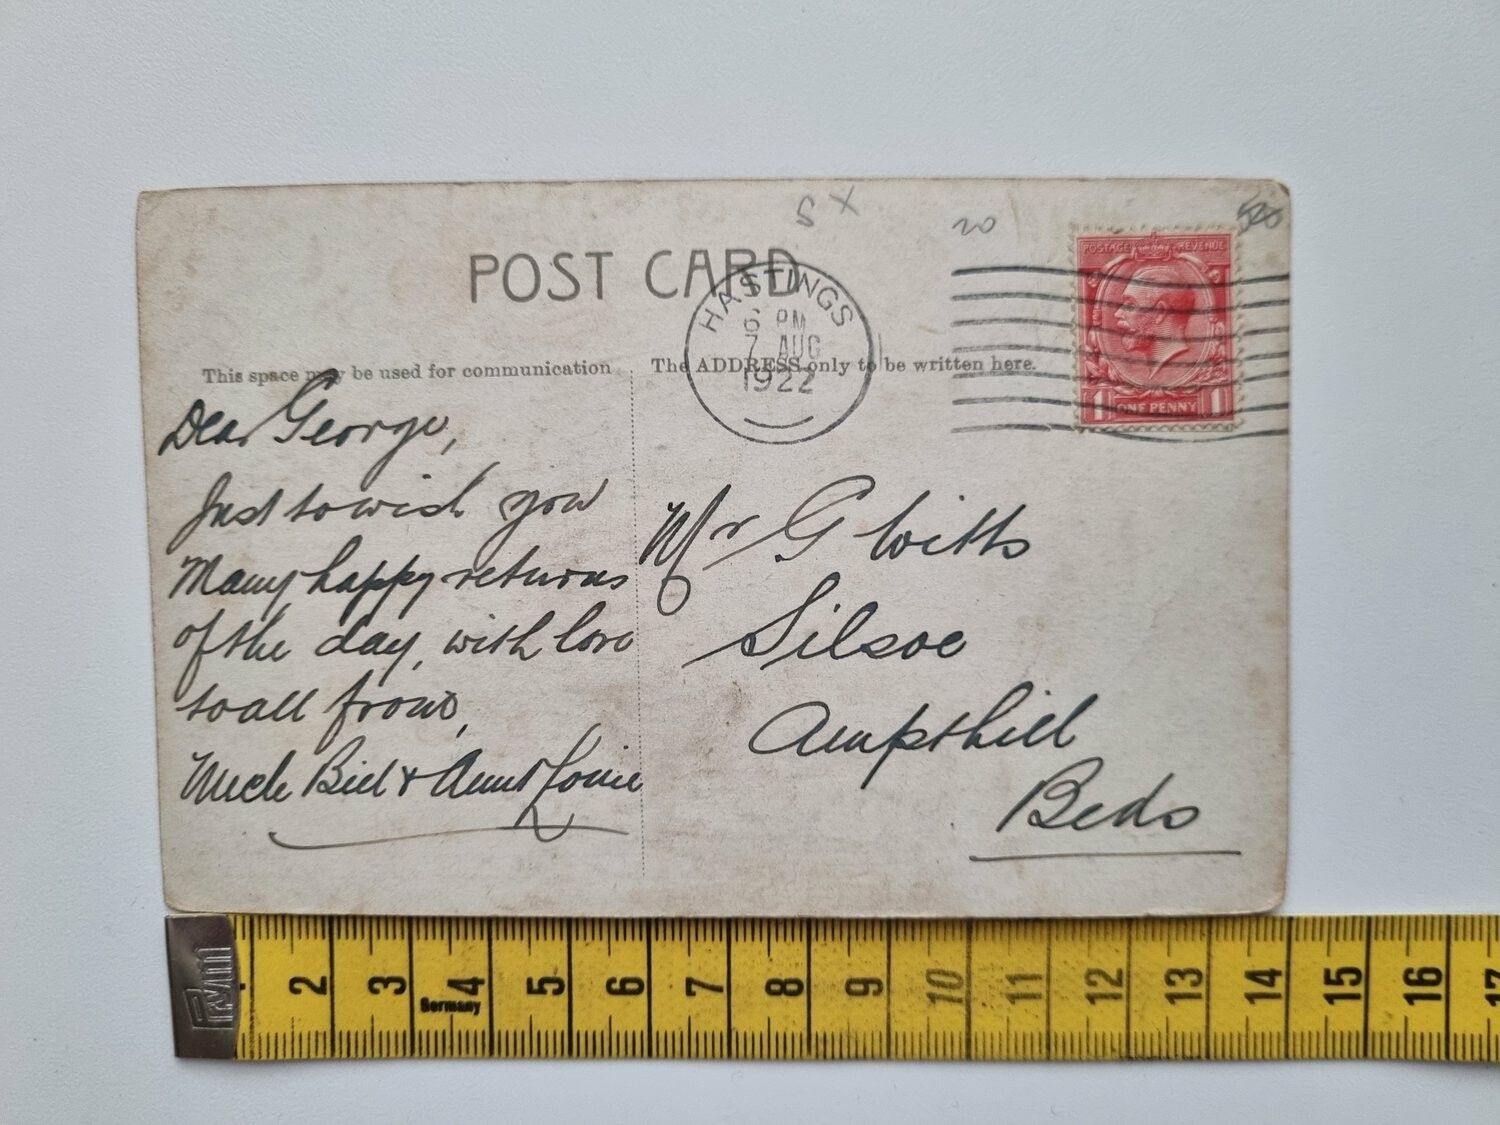 S X
20
POST CARD
HASTINGS
6 PM
7 AUG
1922
POSTAGE REVENUE
1 ONE PENNY 1
This space may be used for communication
The ADDRESS only to be written here.
Dear George,
Just to wish you
Many happy returns
of the day, with love
to all from,
Uncle Bill & Aunt Louie
Mr G Witts
Silsoe
Ampthill
Beds
Prym
2 3 4 5 6 7 8 9 10 11 12 13 14 15 16 17
Germany